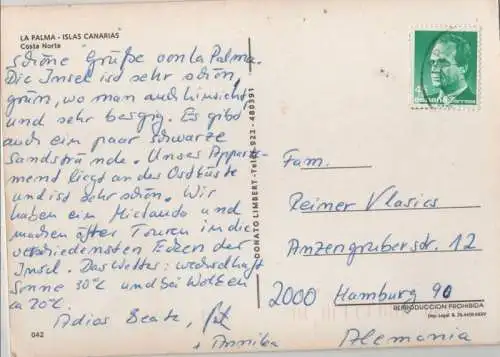 LA PALMA - ISLAS CANARIAS
Costa Norte
schöne Grüße von La Palma.
Die Insel ist sehr schön,
grün, wo man auch hinsieht
und sehr bergig. Es gibt
auch ein paar schwarze
Sandstrände. Unser Appart-
ment liegt an der Ostküste
und ist sehr schön. Wir
haben ein Mietauto und
machen öfter Touren in die
verschiedensten Ecken der
Insel. Das Wetter: wechselhaft
Sonne 30°C und bei Wolken
ca 20°C.
Adios Beate,
+ Annika
042
DONATO LIMBERT - Telef. 922 - 480391
ESPAÑA
Fam.
Reimer Vlasics
Anzengruberstr. 12
2000 Hamburg 90
REPRODUCCION PROHIBIDA
Alemania